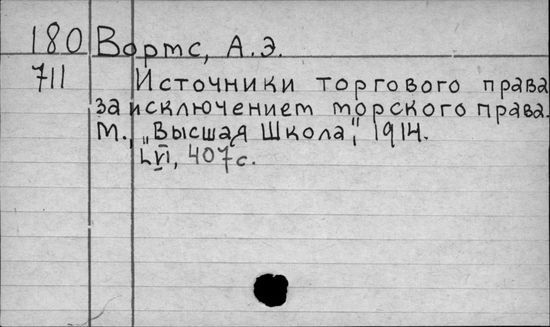 180 Вормс, А.Э.
711 Источники торгового права
за исключением морского права.
М., „Высшая Школа“, 1914.
LVI, 407 с.